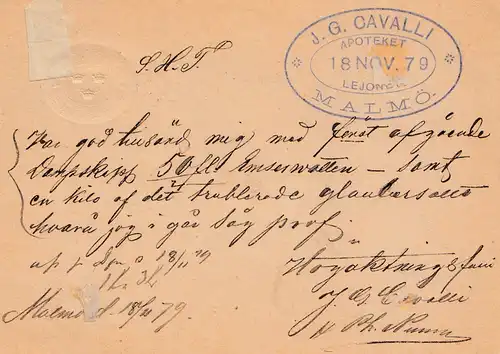 J. G. CAVALLI
APOTEKET
18 NOV. 79
LEJONET
MALMÖ.
S. H. T.
Var god tillsänd mig med först afgående
Dampskepp 50 fl. Emservatten — samt
en kilo af det
hvarå jag i går såg prof.
18/11 79
Högaktningsfullt
Malmö d. 18/11 79.
J. G. Cavalli